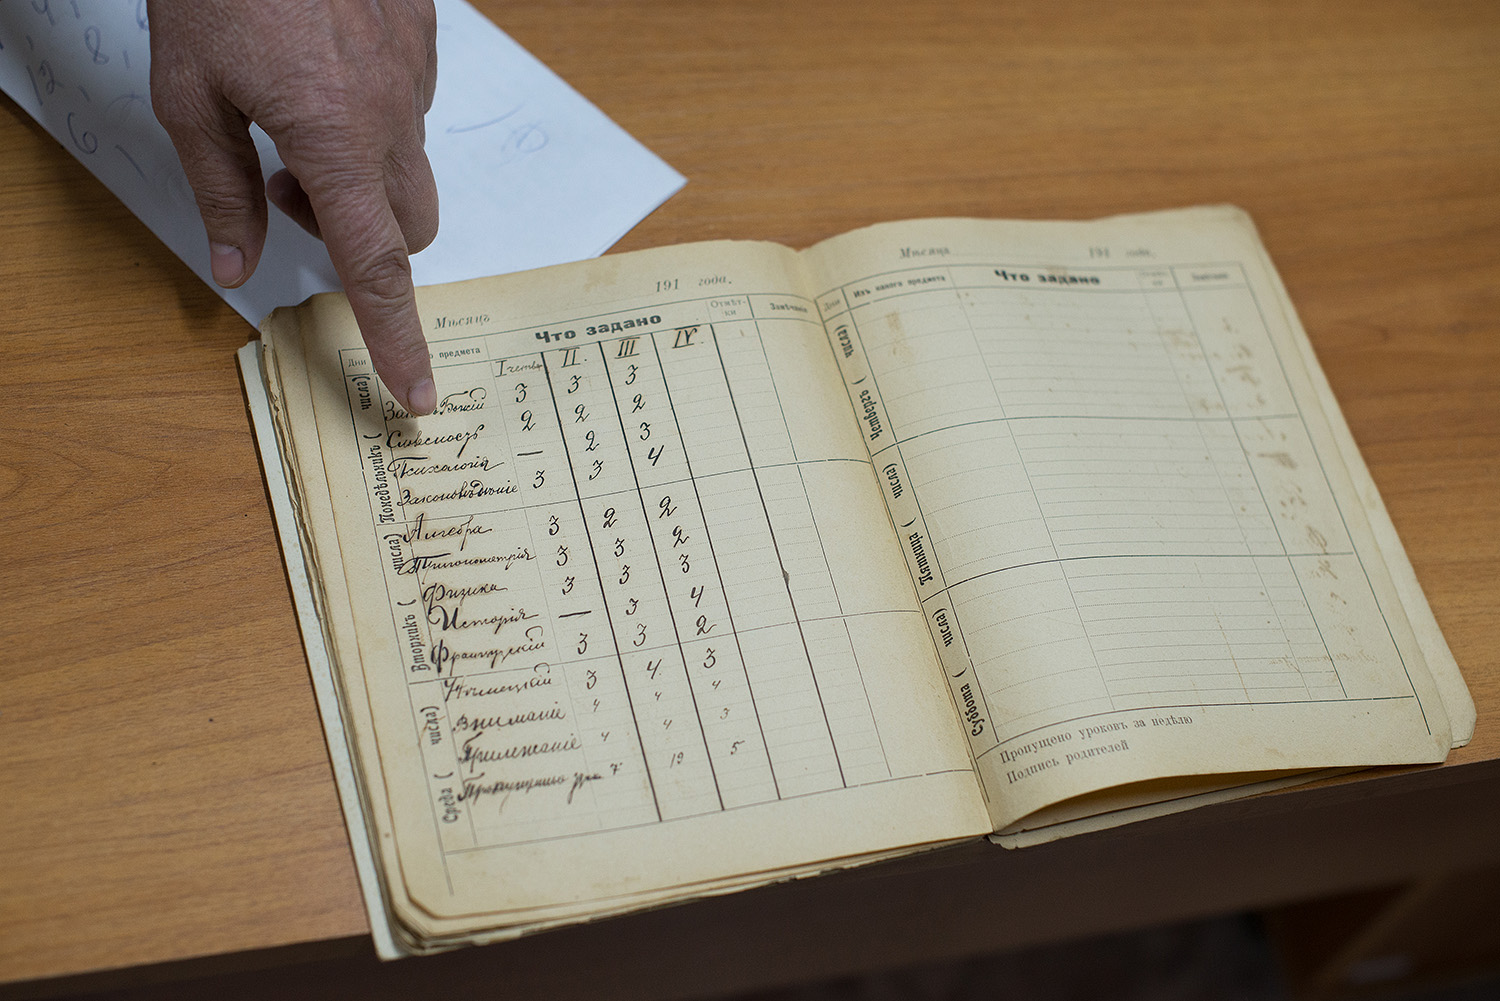 Мѣсяцъ 191 года.
Дни предмета Что задано Отмѣт-ки Замѣчанія
I четв. II. III IV.
Понедѣльникъ ( числа)
Законъ Божій 3 3 3
Словесность 2 2 2
Психологія — 2 3
Законовѣдѣніе 3 3 4
Вторникъ ( числа)
Алгебра 3 2 2
Тригонометрія 3 3 2
Физика 3 3 3
Исторія — 3 4
Французскій 3 3 2
Среда ( числа)
Нѣмецкій 3 4 3
Вниманіе 4 4 4
Прилежаніе 4 4 3
Пропущено 7 19 5
Мѣсяцъ 191 года.
Дни Изъ какого предмета Что задано
Четвергъ ( числа)
Пятница ( числа)
Суббота ( числа)
Пропущено уроковъ за недѣлю
Подпись родителей
8
12
9